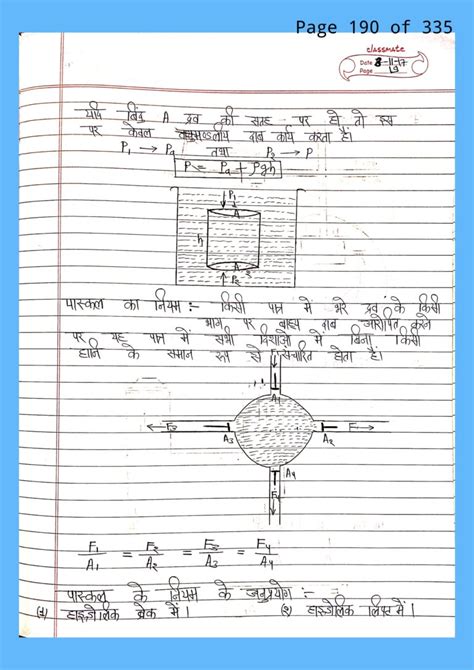 Page 190 of 335
classmate
Date 8-11-17
Page 19
यदि बिंदु A द्रव की सतह पर हो तो इस
पर केवल वायुमण्डलीय दाब कार्य करता है।
P₁ → Pa तथा P₂ → P
P = Pa + ρgh
P₁
A
h
A
P₂
पास्कल का नियम :- किसी पात्र में भरे द्रव के किसी
भाग पर बाह्य दाब आरोपित करने
पर यह पात्र में सभी दिशाओं में बिना किसी
हानि के समान रूप से संचारित होता है।
F₁
A₁
F₃
A₃
A₂
F
A₄
F₄
F₁/A₁ = F₂/A₂ = F₃/A₃ = F₄/A₄
पास्कल के नियम के अनुप्रयोग :-
(१) हाइड्रोलिक ब्रेक में। (२) हाइड्रोलिक लिफ्ट में।